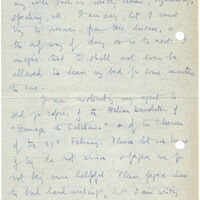 any work such as writing letters,
speaking, etc. I am sorry, but I cannot
try to recover from this disease, &
the only way of doing so is to rest. I
imagine that I shall not even be
allowed to leave my bed for some months
to come.
I am instructing my agent to
send you copies of the Italian translation of
"Homage to Catalonia" & of the Observer
of the 27th February. Please let me know
if they do not arrive, & forgive me for
not being more helpful. Please forgive also
this bad handwriting, but I am writing